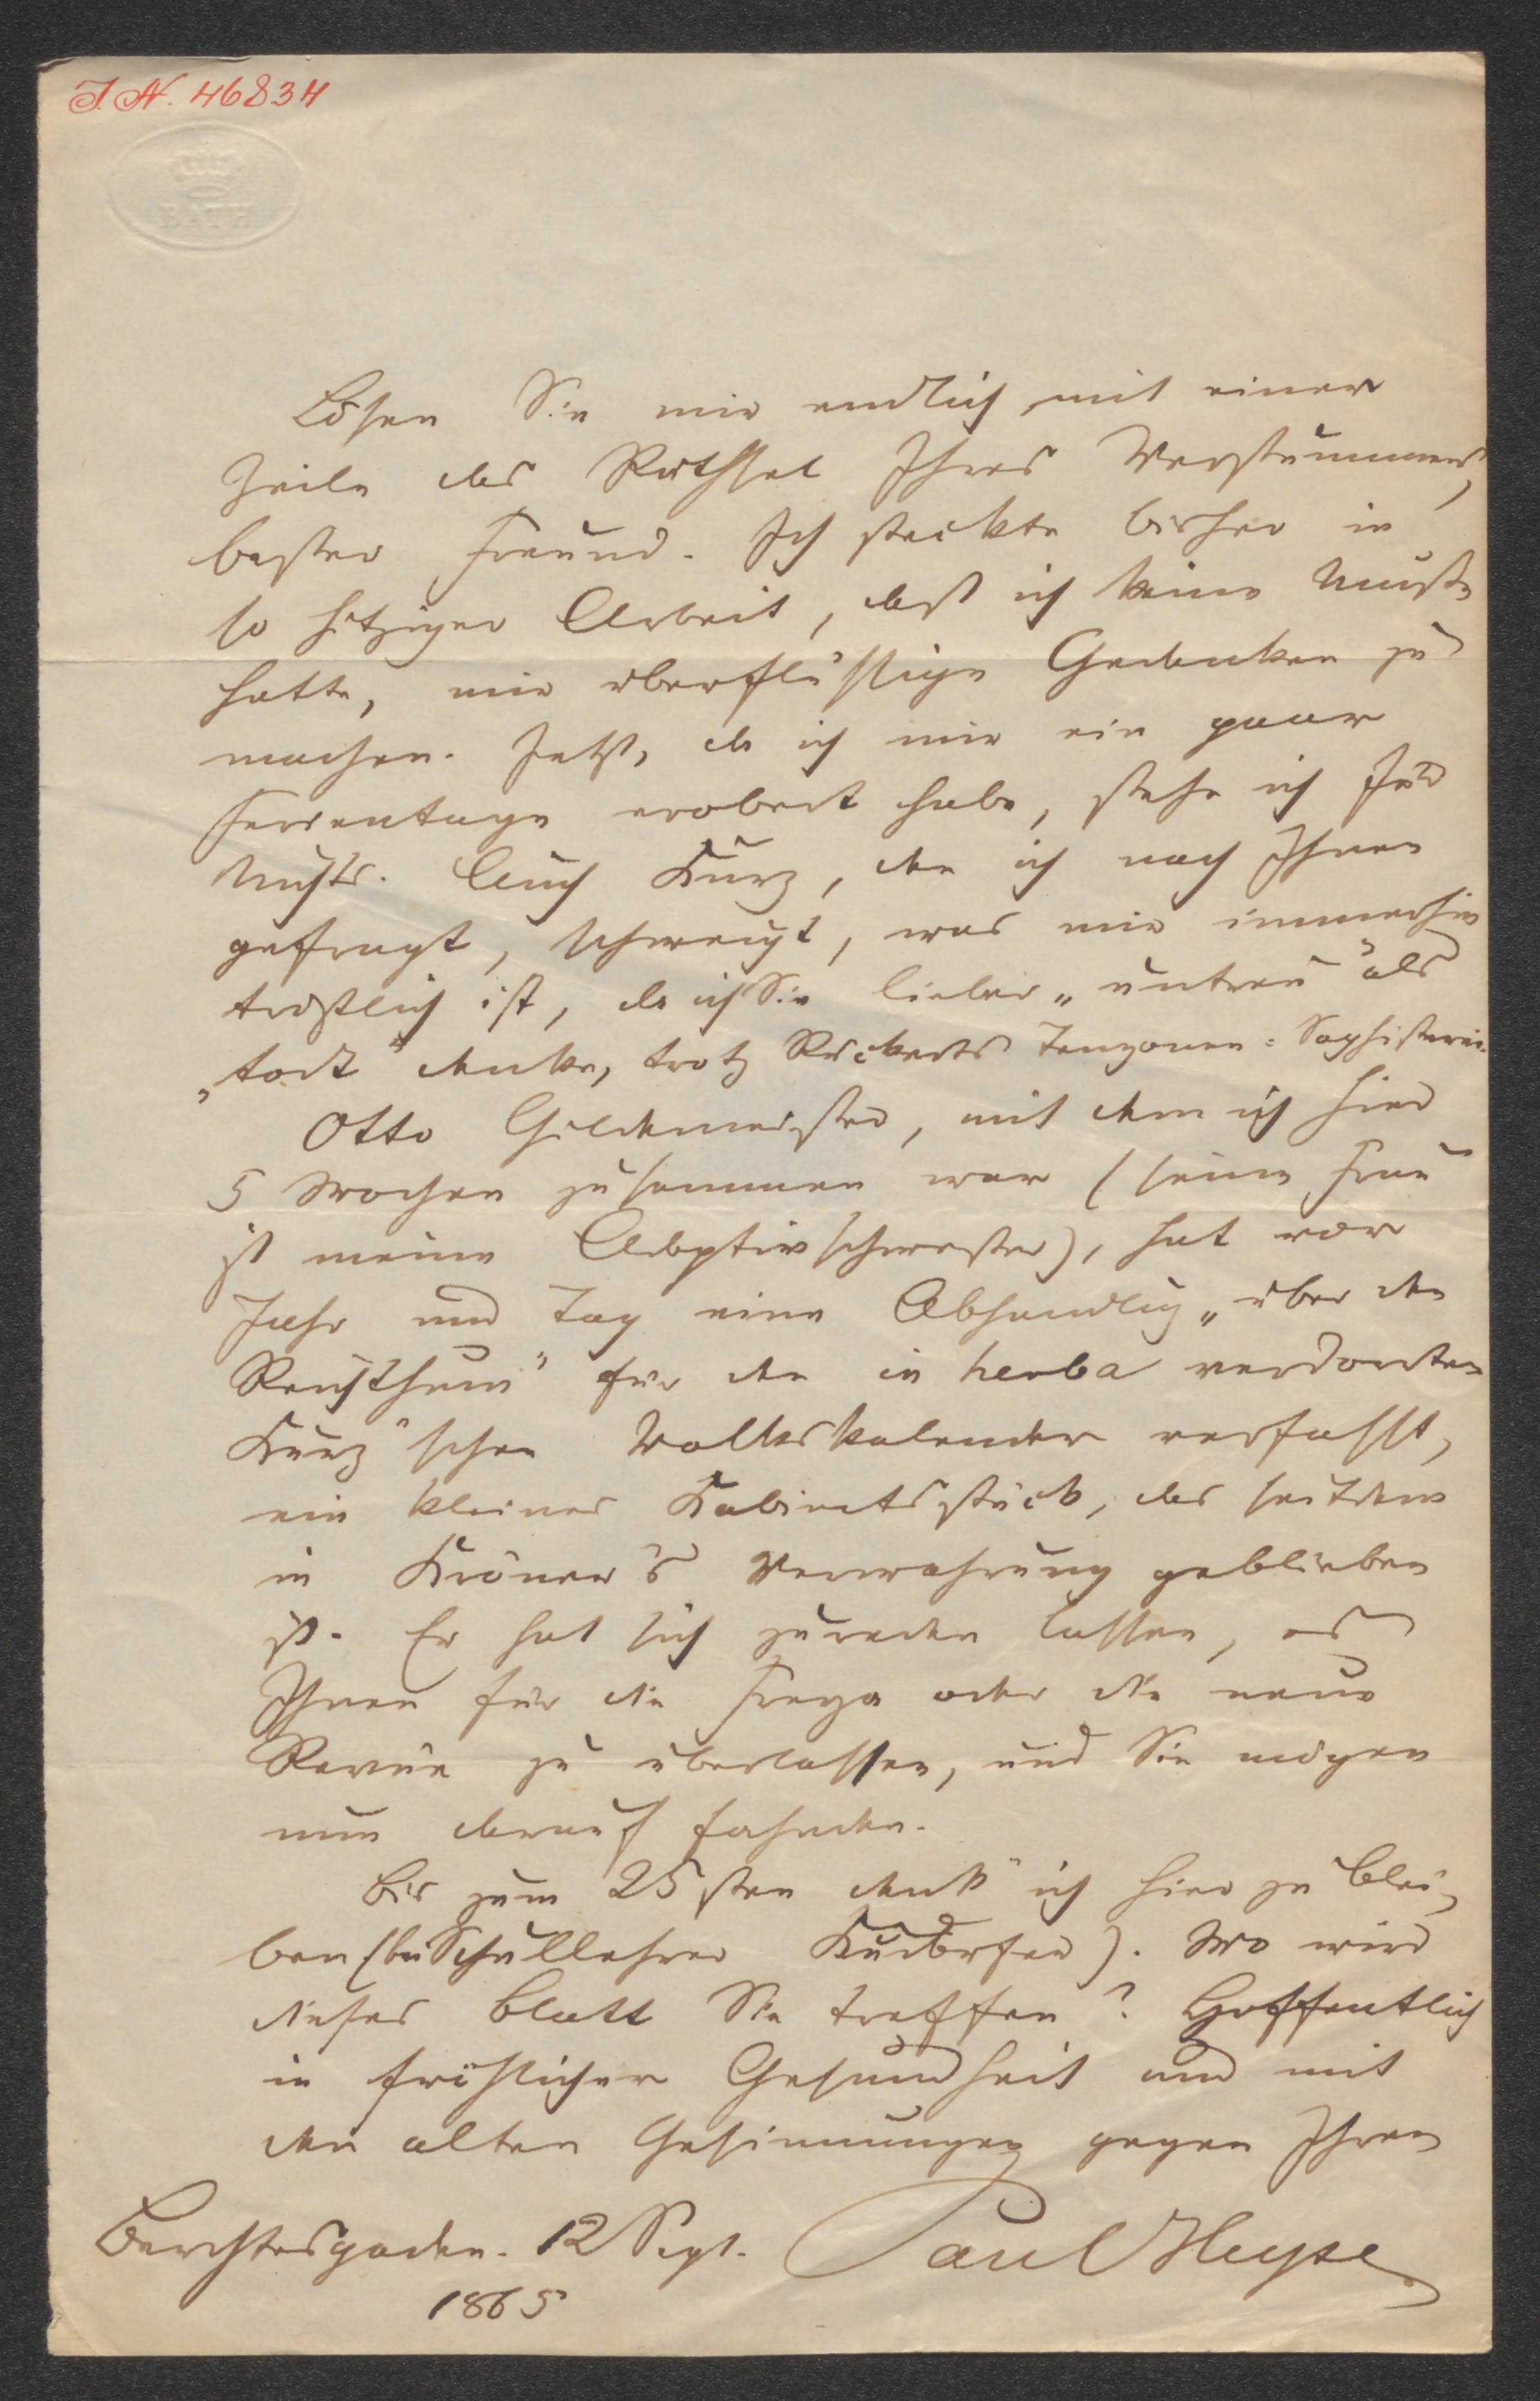 I. N. 46834
BATH
Lösen Sie mir endlich mit einer
Zeile das Räthsel Ihres Verstummens,
bester Freund. Ich steckte bisher in
so hitziger Arbeit, daß ich keine Muße
hatte, mir überflüssige Gedanken zu
machen. Jetzt, da ich mir ein paar
Ferientage erobert habe, stehe ich für
Nichts. Auch Kurz, den ich nach Ihnen
gefragt, schweigt, was mir immerhin
tröstlich ist, da ich Sie lieber „untreu" als
„todt" denke, trotz Rückerts Tenzonen-Sophisterei.
Otto Gildemeister, mit dem ich hier
5 Wochen zusammen war (seine Frau
ist meine Adoptivschwester), hat vor
Jahr und Tag eine Abhandlung „über den
Reichthum" für den in herba verdorrten
Kurz'schen Volkskalender verfasst,
ein kleines Kabinetsstück, das seitdem
in Kröner's Verwahrung geblieben
ist. Er hat sich zureden lassen, es
Ihnen für die Freya oder die neue
Revüe zu überlassen, und Sie mögen
nun darauf fahnden.
Bis zum 25sten denk' ich hier zu blei-
ben (bei Schullehrer). Wo wird
dieses Blatt Sie treffen? Hoffentlich
in fröhlicher Gesundheit und mit
den alten Gesinnungen gegen Ihren
Berchtesgaden. 12 Sept. Paul Heyse
1865